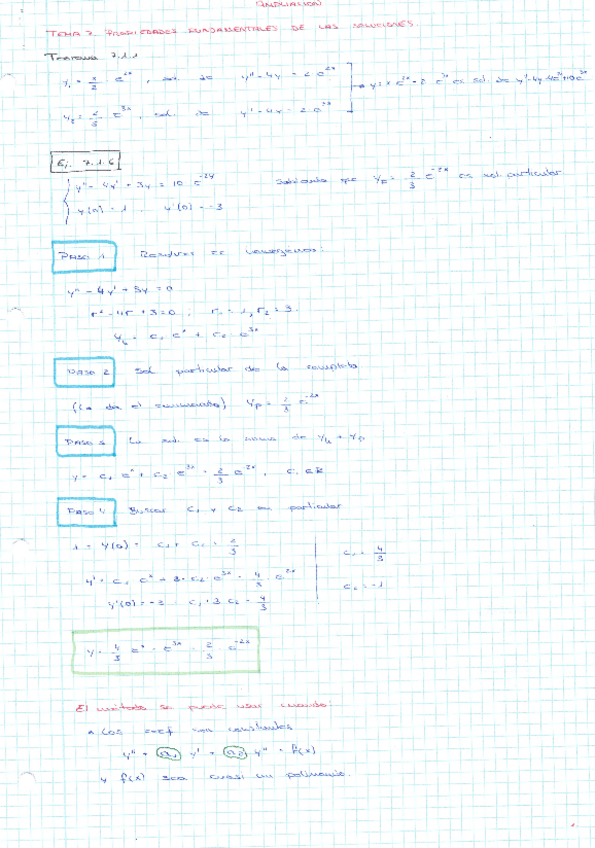 AMPLIACIÓN
TEMA 7. PROPIEDADES FUNDAMENTALES DE LAS SOLUCIONES.
Teorema 7.1.1
, sol. de y'' - 4y =
, sol. de y'' - 4y = 2e^{3x}
Ej. 7.1.6
y'' - 4y' + 3y = 10 e^{-2x} sabiendo que y_p = 2/3 e^{-2x} es sol. particular
y(0) = 1, y'(0) = -3
PASO 1 Resolver la homogénea:
y'' - 4y' + 3y = 0
r² - 4r + 3 = 0 ; r_1 = 1, r_2 = 3.
y_h = c_1 e^x + c_2 · e^{3x}
PASO 2 Sol particular de la completa
(La da el enunciado) y_p = 2/3 e^{-2x}
PASO 3 La sol. es la suma de y_h + y_p
y = c_1 e^x + c_2 e^{3x} + 2/3 e^{-2x}, c_i ∈ R
PASO 4 Buscar c_1 y c_2 en particular
1 = y(0) = c_1 + c_2 + 2/3
c_1 = 4/3
y' = c_1 e^x + 3 · c_2 e^{3x} - 4/3 · e^{-2x}
c_2 = -1
y'(0) = -3 = c_1 + 3 c_2 - 4/3
y = 4/3 e^x - e^{3x} + 2/3 · e^{-2x}
El método se puede usar cuando:
Los coef son constantes
y'' + a_1 y' + a_2 y'' = f(x)
y f(x) sea cuasi un polinomio.